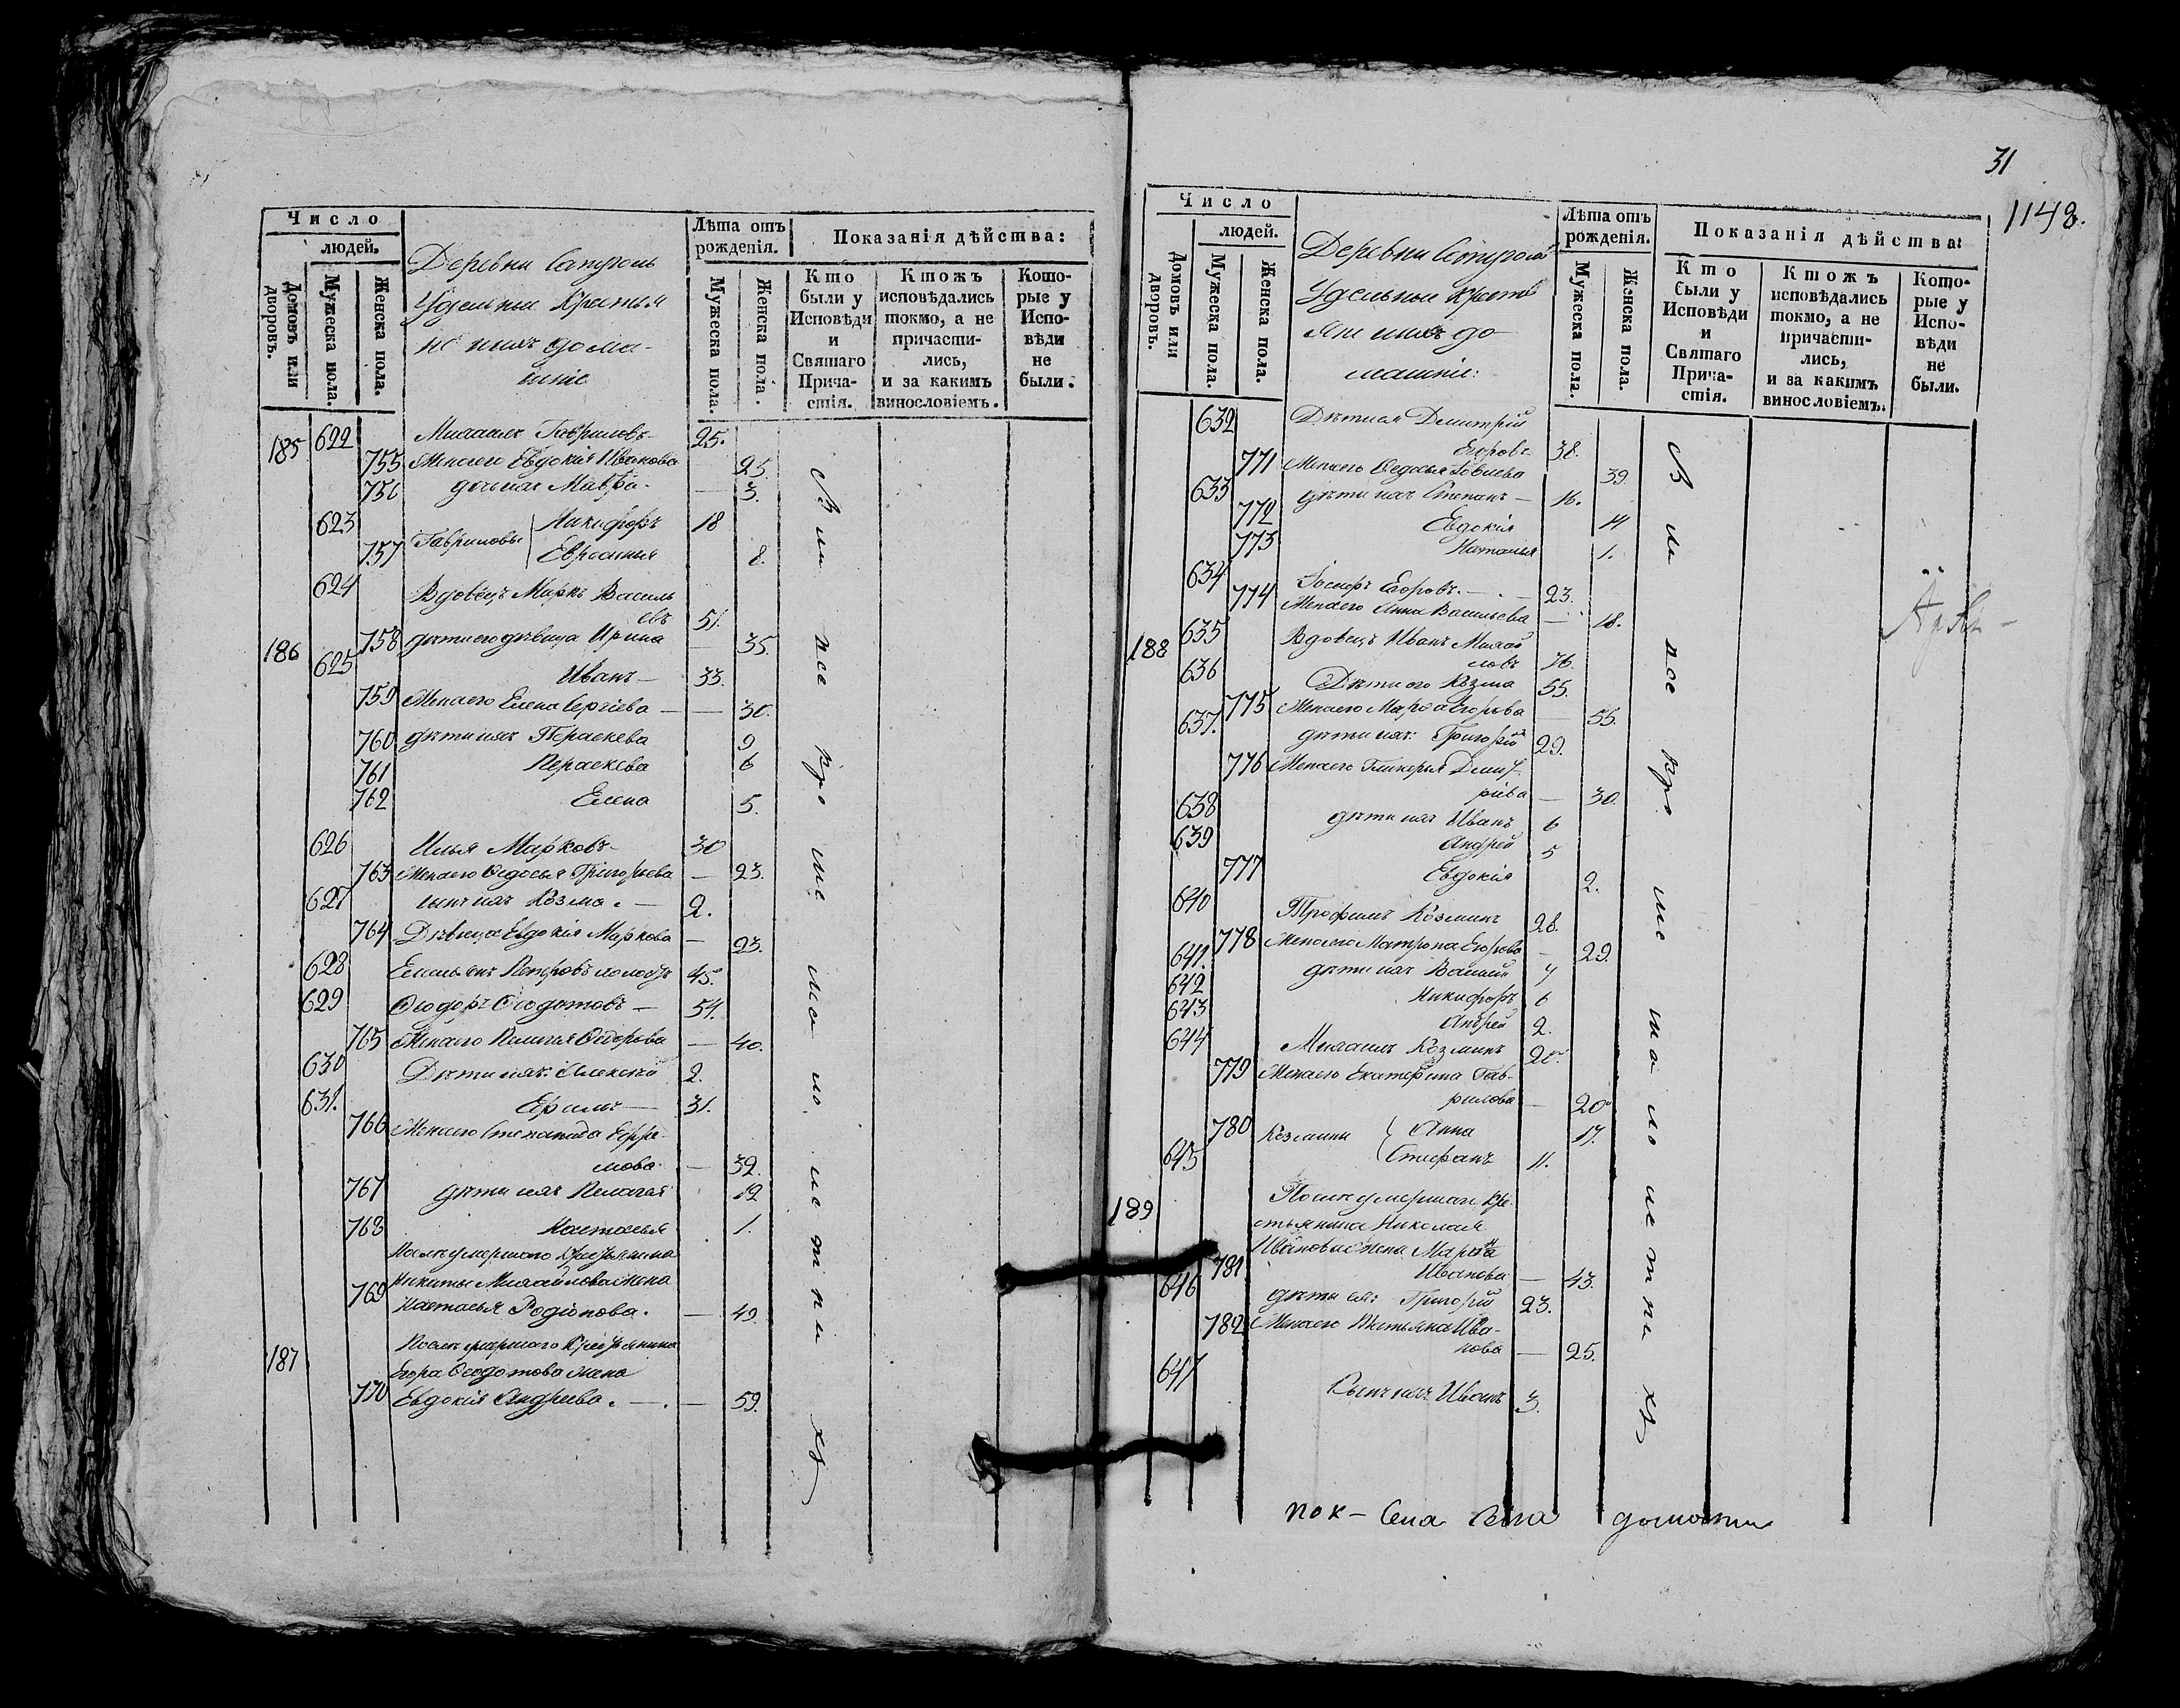 Число
людей.
Домовъ или дворовъ.
Мужеска пола.
Женска пола.
Деревни
Удельные
ихъ дома-
шніе
Лѣта отъ рожденія.
Мужеска пола.
Женска пола.
Показанія дѣйства:
Кто были у Исповѣди и Святаго Прича-стія.
Ктожъ исповѣдались токмо, а не причасти-лись, и за какимъ винословіемъ.
Кото-рые у Испо-вѣди не были.
185 622 Михаилъ Гавриловъ 25.
755 Жена его Евдокія Иванова 25.
756 дочь ихъ Мавра 3.
623 Гавриловы Никифоръ 18
757 Евросинья 8.
624 Вдовецъ Маркъ Василь
186 евъ 51.
758 дѣти его дѣвица Ирина 35.
625 Иванъ 33.
759 Жена его Елена Сергіева 30.
760 дѣти ихъ Параскева 9
761 Параскева 6
762 Елена 5.
626 Илья Марковъ 30
763 Жена его Ѳедосья Григорьева 23.
627 сынъ ихъ Козма 2.
764 Дѣвица Евдокія Маркова 23.
628 Емельянъ Петровъ холостъ 45.
629 Ѳеодоръ Ѳеодотовъ 54.
765 Жена его Пелагея Ѳедорова 40.
630 Дѣти ихъ: Алексей 2.
631. Ефимъ 31.
766 Жена его Степанида Ефре-
мова 32.
767 дѣти ихъ Пелагея 12
768 Настасья 1.
Послѣ умершаго Крестьянина
Никиты Михайлова жена
769 Настасья Родіонова. 49.
187 Послѣ умершаго Крестьянина
Егора Ѳеодотова жена
770 Евдокія Андреева. 59.
31
1148.
Число
людей.
Домовъ или дворовъ.
Мужеска пола.
Женска пола.
Деревни
Удельные
яне ихъ до
машніе:
Лѣта отъ рожденія.
Мужеска пола.
Женска пола.
Показанія дѣйства:
Кто были у Исповѣди и Святаго Прича-стія.
Ктожъ исповѣдались токмо, а не причасти-лись, и за какимъ винословіемъ.
Кото-рые у Испо-вѣди не были.
632 Дѣти ея Димитрій
Егоровъ 38.
771 Жена его Ѳедосья 39.
633 дѣти ихъ Степанъ 16.
772 Евдокія 14
773 Наталья 1.
634 Іосифъ Егоровъ. 23.
774 Жена его Анна Васильева 18.
188 635 Вдовецъ Иванъ Михай
ловъ 76.
636 Дѣти его Козма 55.
775 Жена его Марѳа Егорова 55.
637. дѣти ихъ: Григорій 29.
776 Жена его Гликерья Димит
ріева 30.
638 дѣти ихъ Иванъ 6
639 Андрей 5
777 Евдокія 2.
640 Трофимъ Козминъ 28.
778 Жена его Матрона Егорова 29.
641. дѣти ихъ 7
642 Никифоръ 6
643 Андрей 2.
644 Михаилъ Козминъ 20.
779 Жена его Екатерина Гав-
рилова 20
780 Козмины Анна 17.
645 Стефанъ 11.
189 Послѣ умершаго Кре
стьянина Николая
Иванова жена Марѳа
781 Иванова 43.
646 дѣти ея: Григорій 23.
782 Жена его Татьяна Ива-
нова 25.
647 Сынъ ихъ Иванъ 3.